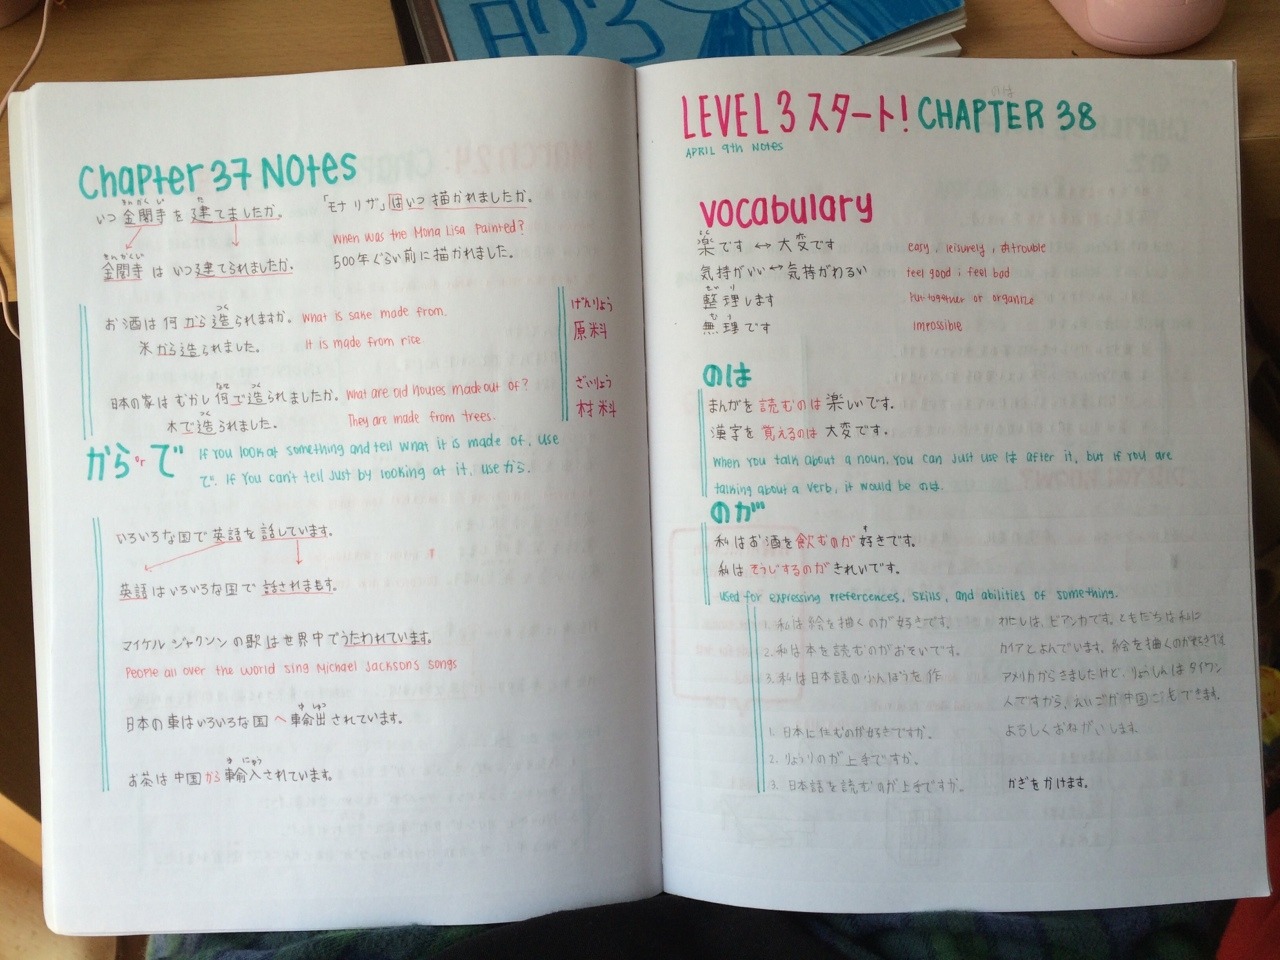 Chapter 37 Notes
きんかくじ た
いつ 金閣寺 を 建てましたか。
きんかくじ
金閣寺 は いつ 建てられましたか。
「モナ リザ」はいつ 描かれましたか。
When was the Mona Lisa painted?
500年ぐらい前に描かれました。
つく
お酒は 何 から 造られますか。 What is sake made from.
米 から造られました。 It is made from rice
げんりょう
原料
なに つく
日本の家は むかし 何で 造られましたか。 What are old houses made out of?
つく
木で造られました。 They are made from trees.
ざいりょう
材料
からorで
If you look at something and tell what it is made of, use
で. If you can't tell just by looking at it, use から.
いろいろな国で 英語を 話しています。
英語はいろいろな国で 話されます。
マイケル ジャクソンの歌は世界中でうたわれています。
People all over the world sing Michael Jacksons songs
ゆ しゅつ
日本の車はいろいろな国へ輸出されています。
ゆ にゅう
お茶は中国から輸入されています。
LEVEL 3 スタート! CHAPTER 38
APRIL 9th Notes
vocabulary
らく
楽です ↔ 大変です easy, leisurely,
気持がいい ↔ 気持がわるい feel good ; feel bad
せい り
整理します Put together or organize
む り
無理です impossible
のは
まんがを 読むのは 楽しいです。
漢字を 覚えるのは 大変です。
When you talk about a noun, you can just use は after it, but if you are
talking about a verb, it would be のは.
のが
す
私はお酒を飲むのが好きです。
私は そうじするのがきれいです。
used for expressing prefercences, skills, and abilities of something.
1. 私は絵を描くのが好きです。
2. 私は本を読むのがおそいです。
3. 私は日本語のぶんぽうを作
1. 日本に住むのが好きですか。
2. りょうりのが上手ですか。
3. 日本語を読むのが上手ですか。
わたしは、ビアンカです。ともだちは私に
カイアとよんでいます。絵を描くのが好きです
アメリカからきましたけど、りょうしんはタイワン
人ですから、えいごが中国ごもできます。
よろしくおねがいします。
かぎをかけます。